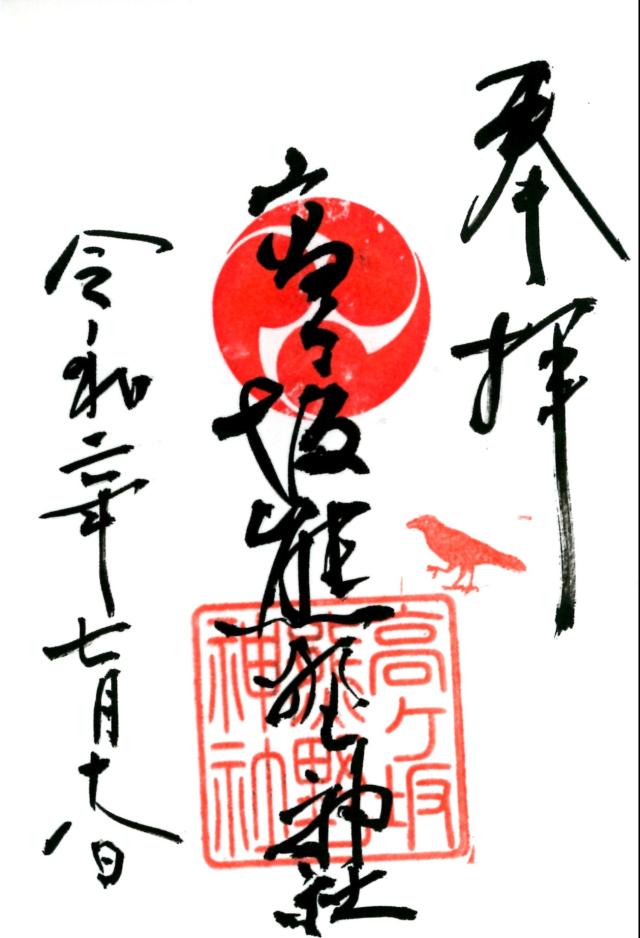 奉拝
高ヶ坂熊野神社
高ヶ坂
熊野
神社
令和六年七月十八日